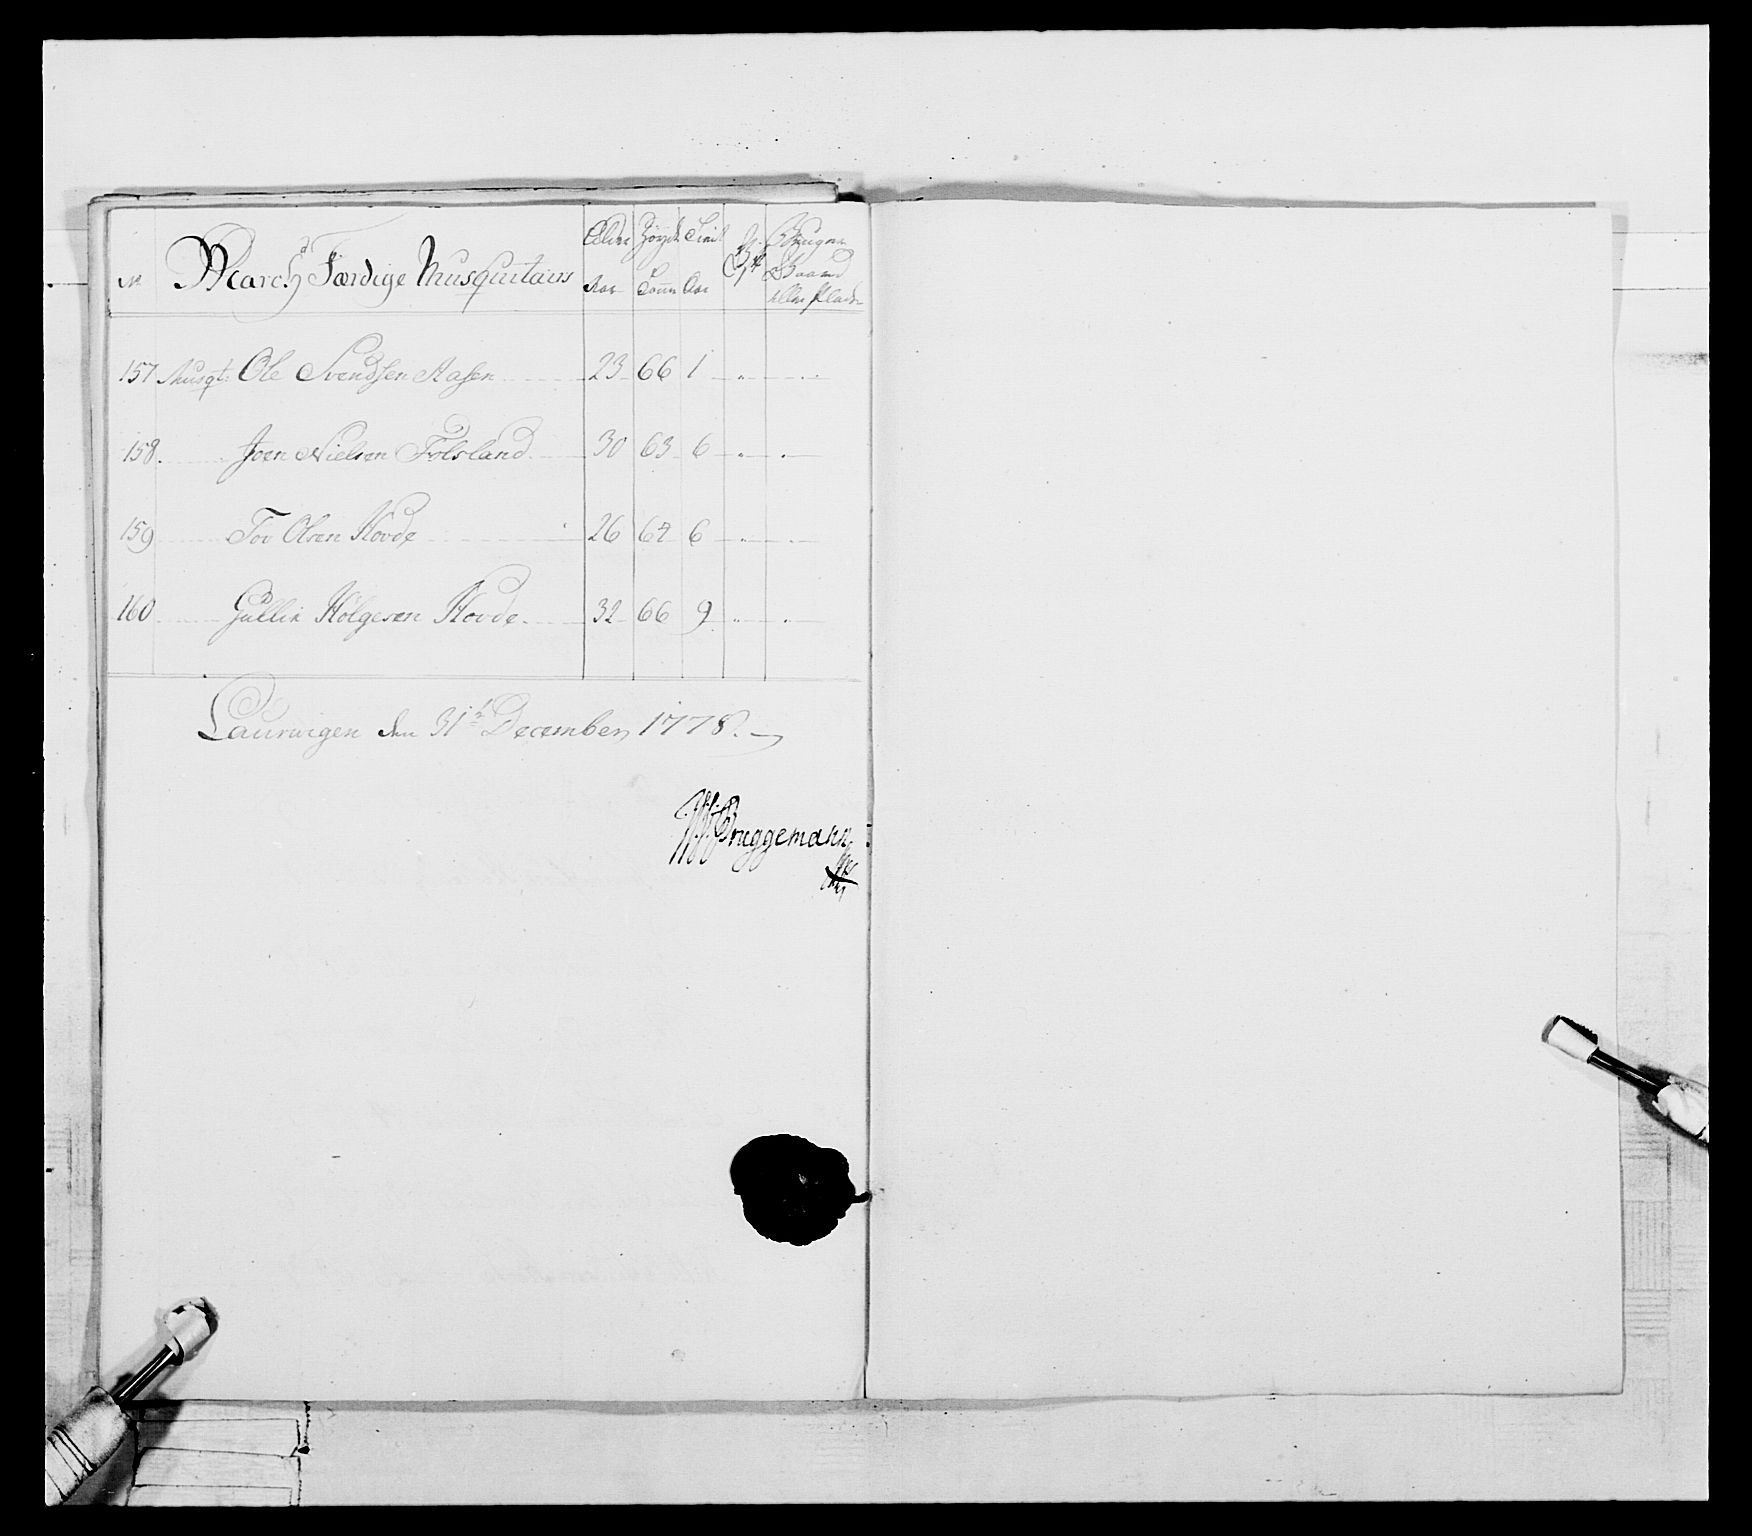 No March Færdige Musquitairs Alder Aar Høyde Tomr Tient Aar Bruger Gaard eller Plads
157 Musqt: Ole Svendsen Aasen 23 66 1
158. Joen Nielsen Folsland 30 63 6
159 Tov Olsen Hovde 26 64 6
160 Gullik Holgersen Hovde 32 66 9
Laurwigen den 31te December 1778.
Bruggemann